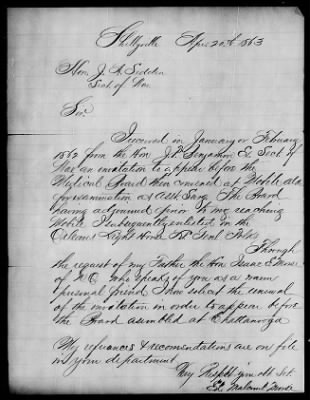 Shelbyville Apr 20th 1863
Hon. J. A. Seddon
Sect. of War
Sir
I received in January or February
1862 from the Hon J. P. Benjamin Ex Sect of
War an invitation to appear before the
Medical Board then convened at Mobile Ala
for examination as Asst Surg. The Board
having adjourned prior to my reaching
Mobile I subsequently enlisted in the
Orleans Light Horse
Through
the request of my Father the Hon Isaac E
of who speaks of you as a warm
personal friend I then solicit the renewal
of the invitation in order to appear before
the Board assembled at Chattanooga
My references & recomendations are on file
in your department.
Very Respt your obt Svt